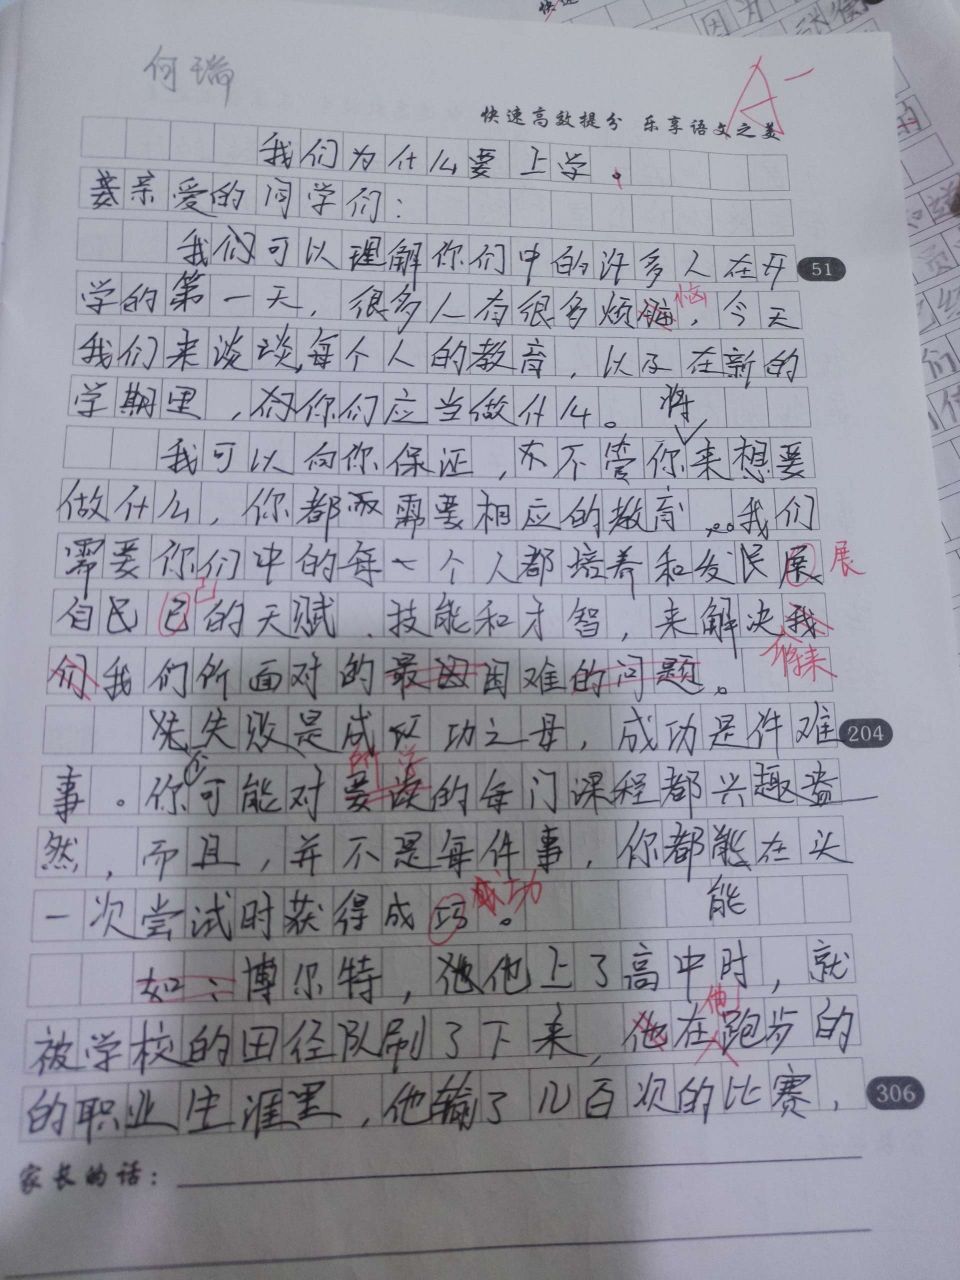 何瑞
A-
快速高效提分 乐享语文之美
我们为什么要上学。
亲爱的同学们：
我们可以理解你们中的许多人在开
51
学的第一天，很多人有很多烦恼，今天
我们来谈谈每个人的教育，以及在新的
学期里，你们应当做什么。
将
我可以向你保证，不管你来想要
做什么，你都需要相应的教育。我们
需要你们中的每一个人都培养和发民展
展
自民己的天赋、技能和才智，来解决我
将来
们我们所面对的最困困难的问题。
失败是成功之母，成功是件难
204
所学
事。你可能对要读的每门课程都兴趣盎
然，而且，并不是每件事，你都能在头
一次尝试时获得成巧。
成功
能
如：博尔特，他他上了高中时，就
被学校的田径队刷了下来，他在跑步的
他
的职业生涯里，他输了几百次的比赛，
306
家长的话：